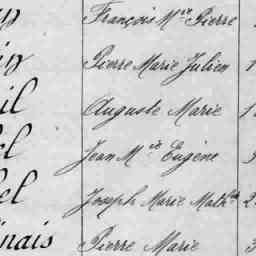 François M.ie Pierre
in Pierre Marie Julien 1
il Auguste Marie 1
el Jean M.ie Eugène 3
el Joseph Marie Math. 2
inais Pierre Marie 3